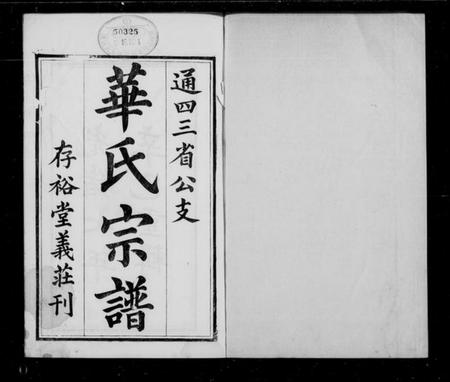 通四三省公支
華氏宗譜
存裕堂義莊刊
50325